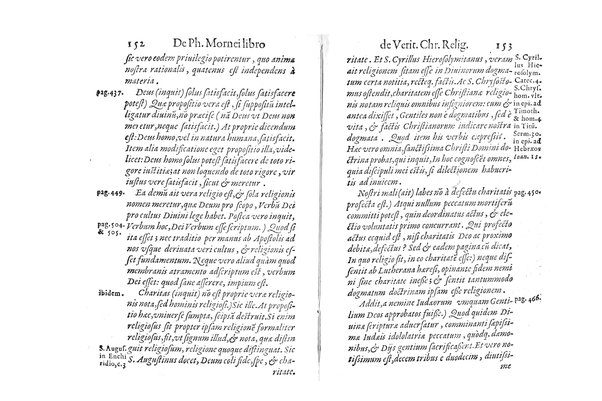 152 De Ph. Mornei libro
sic vero eodem priuilegio potirentur, quo anima
nostra rationalis, quatenus est independens à
materia.
pag.437. Deus (inquit) solus satisfacit, solus satisfacere
potest) Quæ propositio vera est, si suppositū intel-
ligatur diuinū, nō præcise (nā Deus vt Deus non
meretur, neque satisfacit.) At proprie dicendum
est: Deus homo, vel in natura humana, satisfacit.
Item alia modificatione eget propositio illa, vide-
licet: Deus homo solus potest satisfacere de toto ri-
gore iustitiæ; at non loquendo de toto rigore, vir
iustus vere satisfacit, sicut & meretur.
pag.449. Ea demū ait vera religio est, & sola religionis
nomen meretur, quæ Deum pro scopo, Verbū Dei
pro cultus Diuini lege habet. Postea vero inquit,
pag.504. Verbum hoc, Dei Verbum esse scriptum.) Quod si
& 505. ita esset; nec traditio per manum ab Apostolis ad
nos vsque deriuata veri cultus, & religionis es-
set fundamentum. Neque vero aliud quàm quod
membranis atramento adscriptum est, verbum
Dei esset: quod sane asserere, impium est.
ibidem. Charitas (inquit) nō est propriè vera religio-
nis nota, sed hominis religiosi.) Sic ille. At propositio
hæc, vniuerse sumpta, seipsā destruit. Si enim
religiosus sit propter ipsam religionē formaliter
religiosus, fit, vt signum illud, & nota, qua distin
S. Augus. guit religiosum, religione quoque distinguat. Sic
in Enchi S. Augustinus docet, Deum coli fide, spe, & cha-
ridio, c.3 ritate.
de Verit. Chr. Relig. 153
ritate. Et S. Cyrillus Hierosolymitanus, veram
ait religionem sitam esse in Diuinorum dogma-
tum certa notitia, recteq. factis. At S. Chrysosto
mus ostendit, charitatem esse Christianæ religio-
nis notam reliquis omnibus insigniorem: cum &
antea dixisset, Gentiles non è dogmatibus, sed è
vita, & factis Christianorum indicare nostra
dogmata. In quo expressa sunt eius verba.
Hæc vero omnia, sanctissimi Christi Domini do-
ctrina probat, qui inquit, In hoc cognoscēt omnes,
quia discipuli mei estis, si dilectionem habueri-
tis ad inuicem.
S. Cyril.
lus Hie-
rosolym.
Catec.4
S. Chrys.
hom. vlt.
in epi. ad
Timoth.
& hom.4
in Titū.
Serm.30.
in epi. ad
Hebræos
Ioan. 13.
Nostri mali (ait) labes nō à defectu charitatis pag.450.
profecta est.) Atqui nullum peccatum mortiferū
committi potest, quin deordinatus actus, & ele-
ctio voluntatis primo concurrant. Qui prospectus
actus ecquid est, nisi charitatis Deo ac proximo
debitæ, defectus? Sed & eadem pagina cū dicat,
In quo igitur? in hoc certe, & neque dis-
sentit ab Lutherana hæresi, opinante fidem nemi
ni sine charitate inesse; & sentit tantummodo
dogmatum doctrinam ipsam esse religionem.
Addit, a nemine Iudæorum vnquam Gentium pag. 466.
Deos approbatos fuisse.) Quod quidem Di-
uina scriptura aduersatur, commixanti sapissi-
ma Iudais idololatria peccatum, quòdq. damo-
nibus, & Dijs gentium sacrificassent. Et vero no-
tissimum est, decem tribus e duodecim, diutissi-
me